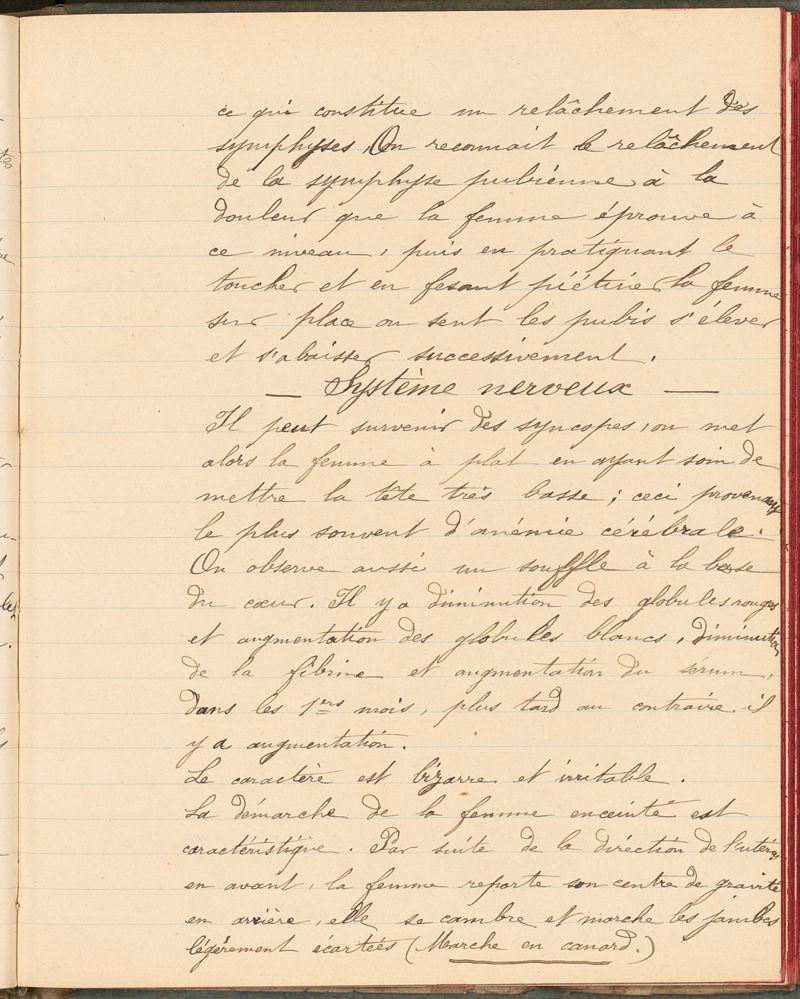 ce qui constitue un relâchement des
symphyses, On reconnait le relâchement
de la symphyse pubienne à la
douleur que la femme éprouve à
ce niveau, puis en pratiquant le
toucher et en fesant piétiner la femme
sur place on sent les pubis s'élever
et s'abaisser successivement.
— Système nerveux —
Il peut survenir des syncopes, on met
alors la femme à plat en ayant soin de
mettre la tête très basse ; ceci provenant
le plus souvent d'anémie cérébrale.
On observe aussi un souffle à la base
du cœur. Il y a diminution des globules rouges
et augmentation des globules blancs, diminution
de la fibrine et augmentation du sérum,
dans les 1ers mois, plus tard au contraire il
y a augmentation.
Le caractère est bizarre et irritable.
La démarche de la femme enceinte est
caractéristique. Par suite de la direction de l'utérus
en avant, la femme reporte son centre de gravité
en arrière, elle se cambre et marche les jambes
légèrement écartées (Marche en canard.)